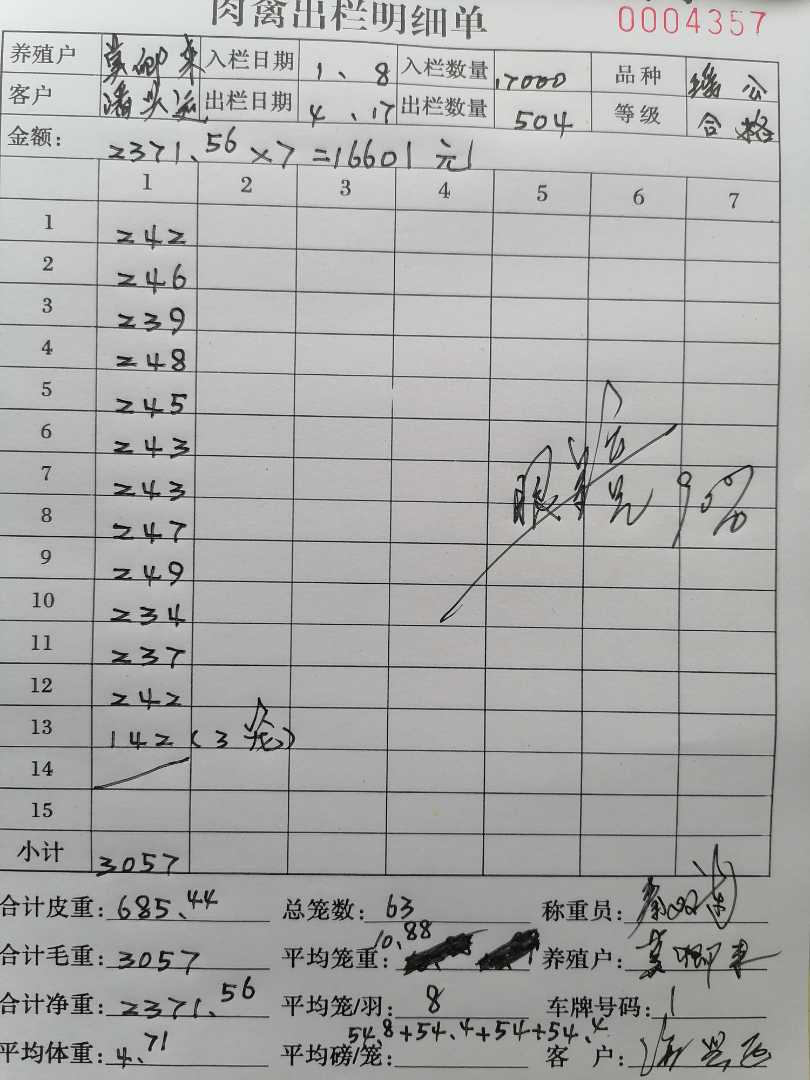 肉禽出栏明细单 0004357
养殖户 黄卿来 入栏日期 1、8 入栏数量 17000 品种 瑶公
客户 潘兴运 出栏日期 4、17 出栏数量 504 等级 合格
金额: 2371.56×7=16601元
1 2 3 4 5 6 7
1 242
2 246
3 239
4 248
5 245
6 243
7 243
8 247
9 249
10 234
11 237
12 242
13 142(3笼)
14
15
小计 3057
90%
合计皮重: 685.44 总笼数: 63 称重员:
合计毛重: 3057 平均笼重: 10.88 养殖户: 黄卿来
合计净重: 2371.56 平均笼/羽: 8 车牌号码:
平均体重: 4.71 平均磅/笼: 54.8+54.4+54+54.4 客户: